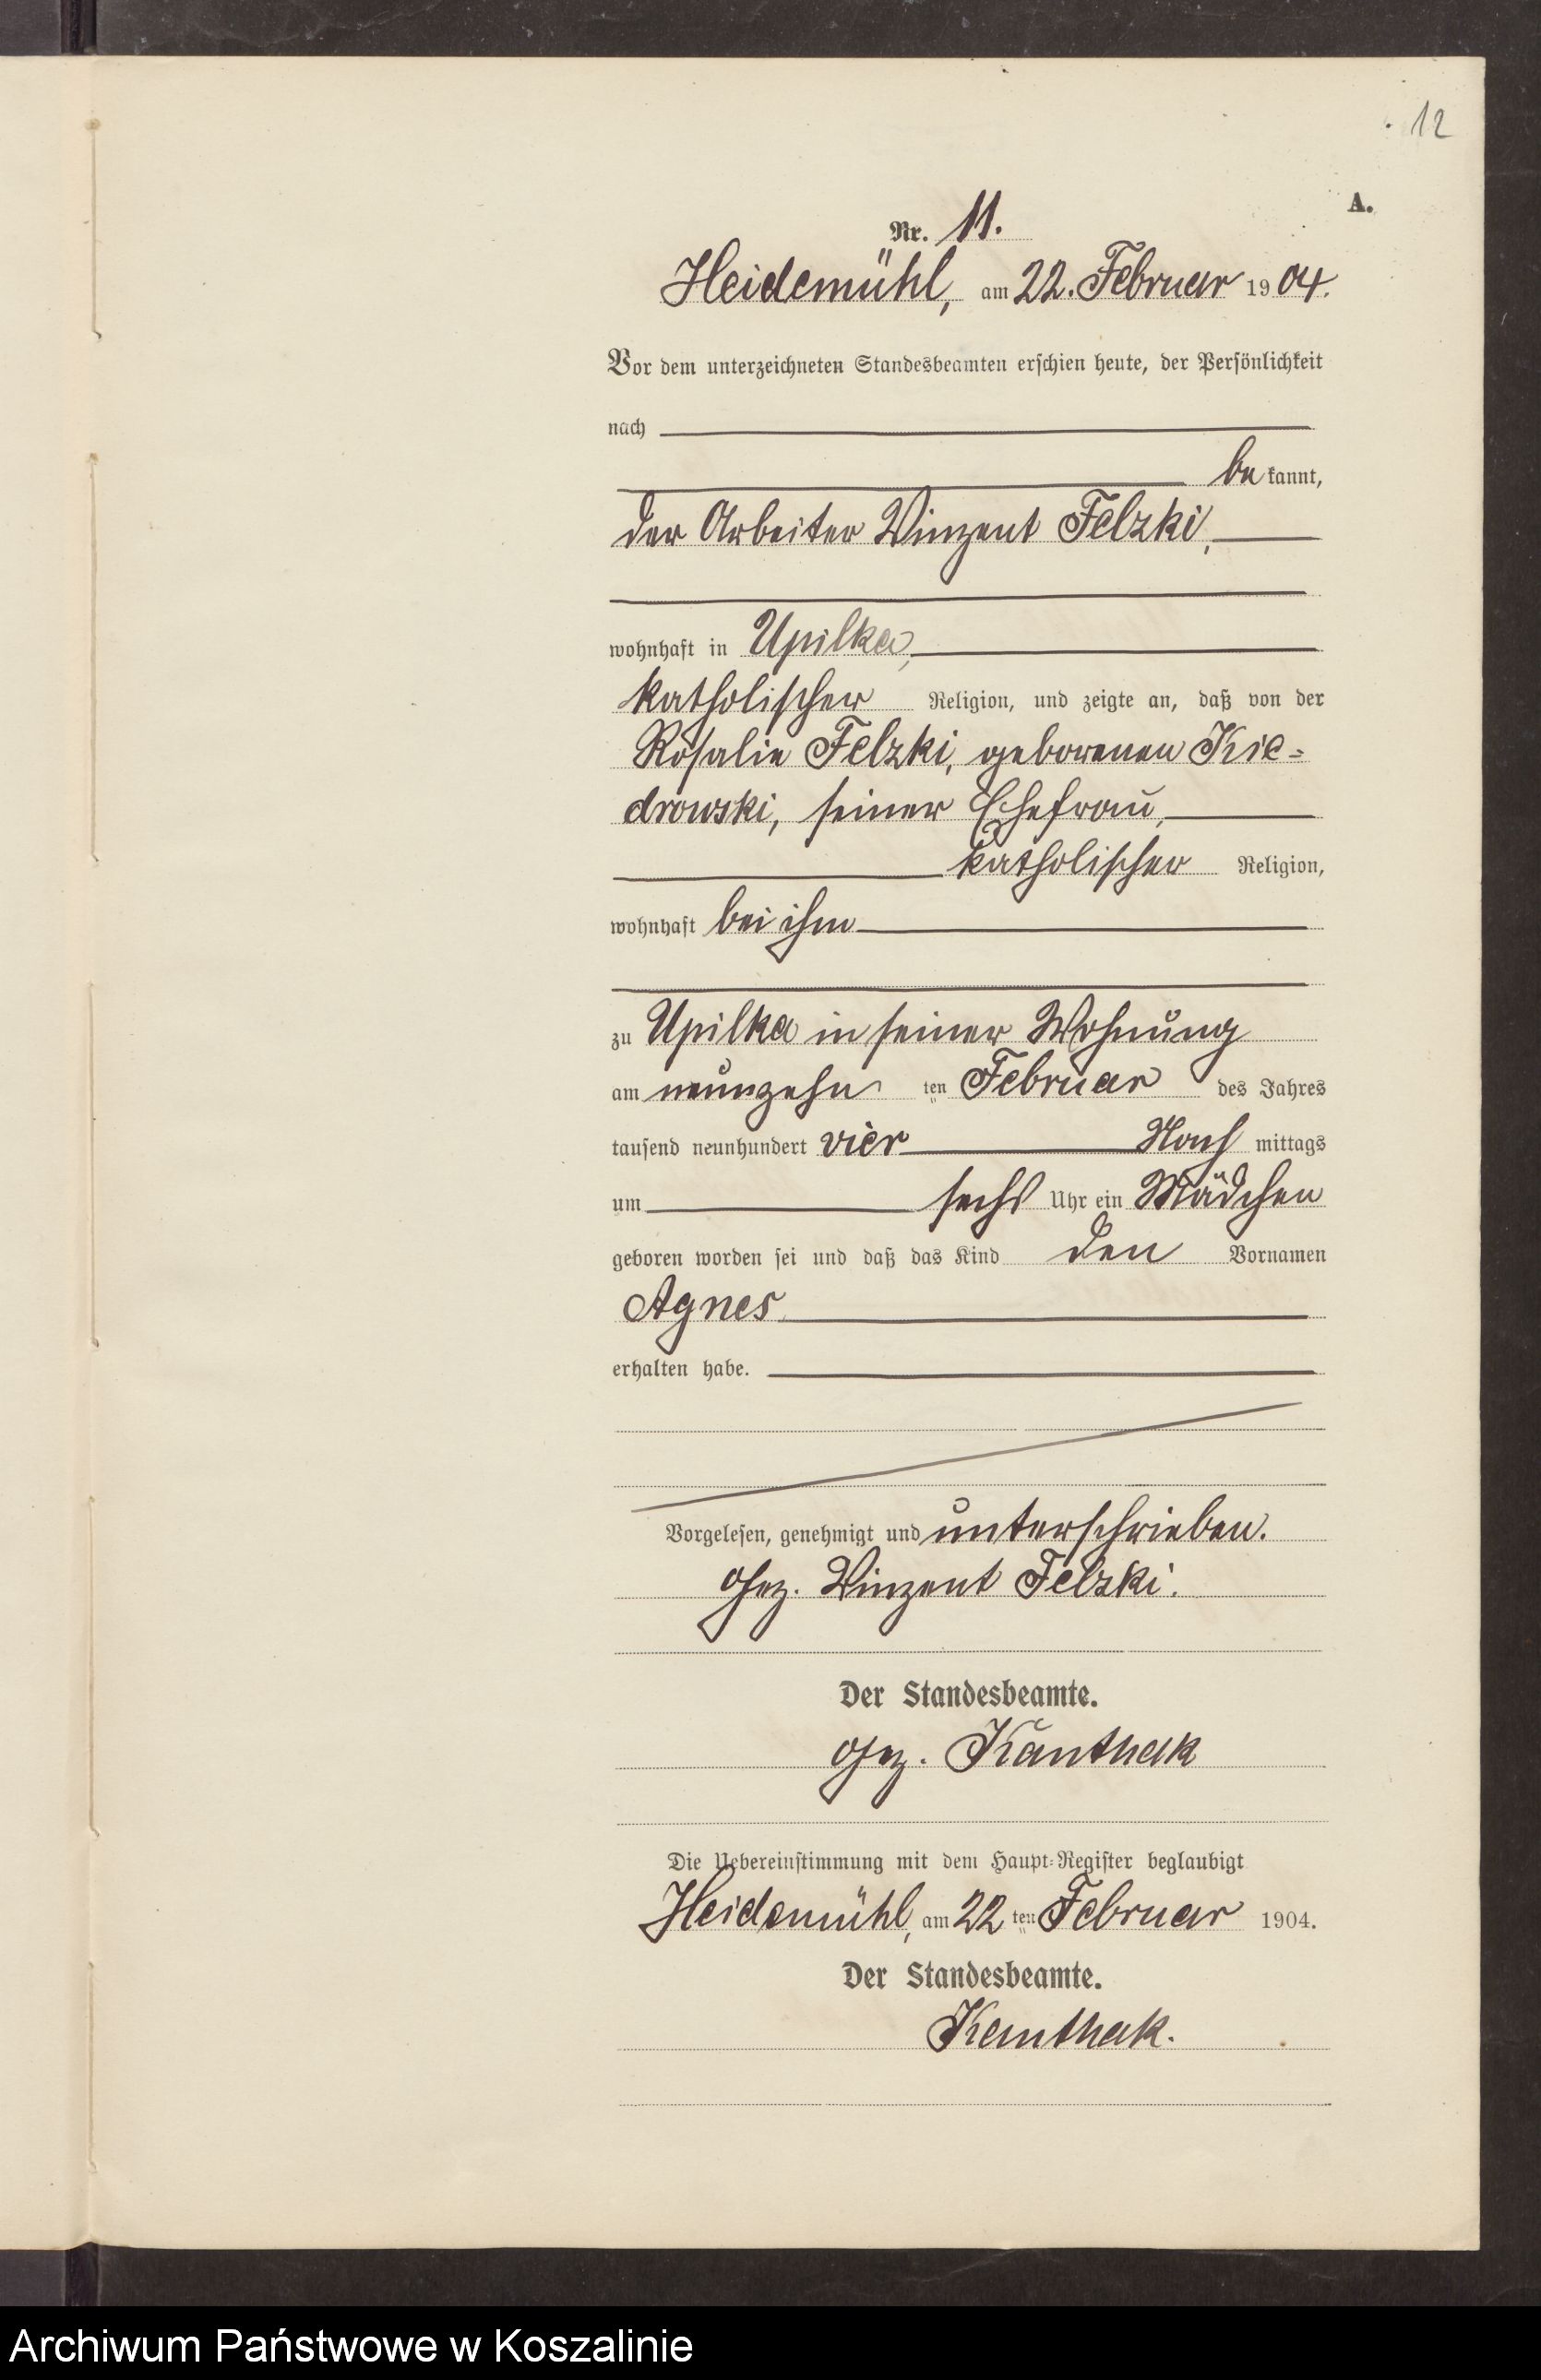 12
A.
Nr. 11.
Heidemühl, am 22. Februar 1904.
Vor dem unterzeichneten Standesbeamten erschien heute, der Persönlichkeit
nach
be kannt,
der Arbeiter Winzent Felzki,
wohnhaft in Upilka,
katholischer Religion, und zeigte an, daß von der
Rosalie Felzki, geborenen Kie=
drowski, seiner Ehefrau,
katholischer Religion,
wohnhaft bei ihm
zu Upilka in seiner Wohnung
am neunzehn ten Februar des Jahres
tausend neunhundert vier Nach mittags
um sechs Uhr ein Mädchen
geboren worden sei und daß das Kind den Vornamen
Agnes
erhalten habe.
Vorgelesen, genehmigt und unterschrieben.
Gez. Winzent Felzki.
Der Standesbeamte.
Gez. Kanthak
Die Uebereinstimmung mit dem Haupt=Register beglaubigt
Heidemühl, am 22 ten Februar 1904.
Der Standesbeamte.
Kanthak.
Archiwum Państwowe w Koszalinie